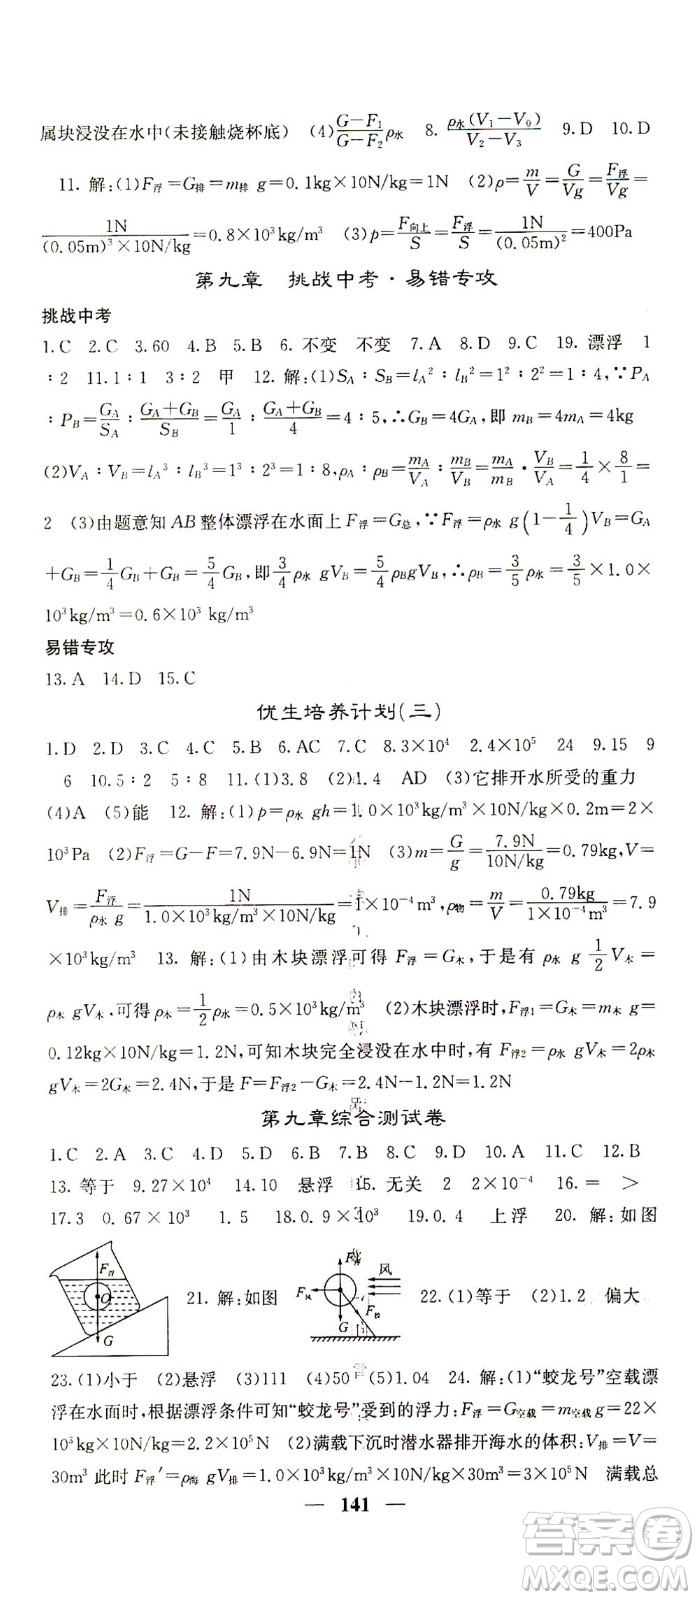 属块浸没在水中(未接触烧杯底) (4)\frac{G-F₁}{G-F₂}ρ水 8.\frac{ρ水(V₁-V₀)}{V₂-V₃} 9.D 10.D
11.解:(1)F浮=G排=m排 g=0.1kg×10N/kg=1N (2)ρ=\frac{m}{V}=\frac{G}{Vg}=\frac{F浮}{Vg}=
\frac{1N}{(0.05m)³×10N/kg}=0.8×10³kg/m³ (3)p=\frac{F向上}{S}=\frac{F浮}{S}=\frac{1N}{(0.05m)²}=400Pa
第九章 挑战中考·易错专攻
挑战中考
1.C 2.C 3.60 4.B 5.B 6.不变 不变 7.A 8.D 9.C 19.漂浮 1
:2 11.1:1 3:2 甲 12.解:(1)S_A:S_B=l_A²:l_B²=1²:2²=1:4,∵P_A
:P_B=\frac{G_A}{S_A}:\frac{G_A+G_B}{S_B}=\frac{G_A}{1}:\frac{G_A+G_B}{4}=4:5,∴G_B=4G_A,即m_B=4m_A=4kg
(2)V_A:V_B=l_A³:l_B³=1³:2³=1:8,ρ_A:ρ_B=\frac{m_A}{V_A}:\frac{m_B}{V_B}=\frac{m_A}{m_B}·\frac{V_B}{V_A}=\frac{1}{4}×\frac{8}{1}=
2 (3)由题意知AB整体漂浮在水面上F浮=G总,∵F浮=ρ水 g(1-\frac{1}{4})V_B=G_A
+G_B=\frac{1}{4}G_B+G_B=\frac{5}{4}G_B,即\frac{3}{4}ρ水 gV_B=\frac{5}{4}ρ_B gV_B,∴ρ_B=\frac{3}{5}ρ水=\frac{3}{5}×1.0×
10³kg/m³=0.6×10³kg/m³
易错专攻
13.A 14.D 15.C
优生培养计划(三)
1.D 2.D 3.A 4.C 5.B 6.AC 7.C 8.3×10⁴ 4.5×10⁷ 24 9.15 9
6 10.5:2 5:8 11.(1)3.8 (2)1.4 AD (3)它排开水所受的重力
(4)A (5)能 12.解:(1)p=ρ水 gh=1.0×10³kg/m³×10N/kg×0.2m=2×
10³Pa (2)F浮=G-F=7.9N-6.9N=1N (3)m=\frac{G}{g}=\frac{7.9N}{10N/kg}=0.79kg,
V排=\frac{F浮}{ρ水 g}=\frac{1N}{1.0×10³kg/m³×10N/kg}=1×10⁻⁴m³,ρ物=\frac{m}{V}=\frac{0.79kg}{1×10⁻⁴m³}=7.9
×10³kg/m³ 13.解:(1)由木块漂浮可得F浮=G木,于是有ρ水 g\frac{1}{2}V木=
ρ木 gV木,可得ρ木=\frac{1}{2}ρ水=0.5×10³kg/m³ (2)木块漂浮时,F浮1=G木=m木 g=
0.12kg×10N/kg=1.2N,可知木块完全浸没在水中时,有F浮2=ρ水 gV木=2ρ木
gV木=2G木=2.4N,于是得F=F浮2-G木=2.4N-1.2N=1.2N
第九章综合测试卷
1.C 2.A 3.D 4.D 5.C 6.B 7.B 8.D 9.C 10.A 11.C 12.B
13.等于 9.27×10⁴ 14.10 悬浮 15.无关 2 2×10⁻⁴ 16.= >
17.3 0.67×10³ 1.5 18.0.9×10³ 19.0.4 上浮 20.解:如图
F浮 O G 21.解:如图 F浮 F风 G F拉 风 22.(1)等于 (2)1.2 偏大
23.(1)小于 (2)悬浮 (3)111 (4)50 (5)1.04 24.解:(1)“蛟龙号”空载漂
浮在水面时,根据漂浮条件可知“蛟龙号”受到的浮力:F浮=G空载=m空载 g=22×
10³kg×10N/kg=2.2×10⁵N (2)满载下沉时潜水器排开海水的体积:V排=V=
30m³此时F浮′=ρ海 gV排=1.0×10³kg/m³×10N/kg×30m³=3×10⁵N 满载总
141
答案圈
MXQE.COM